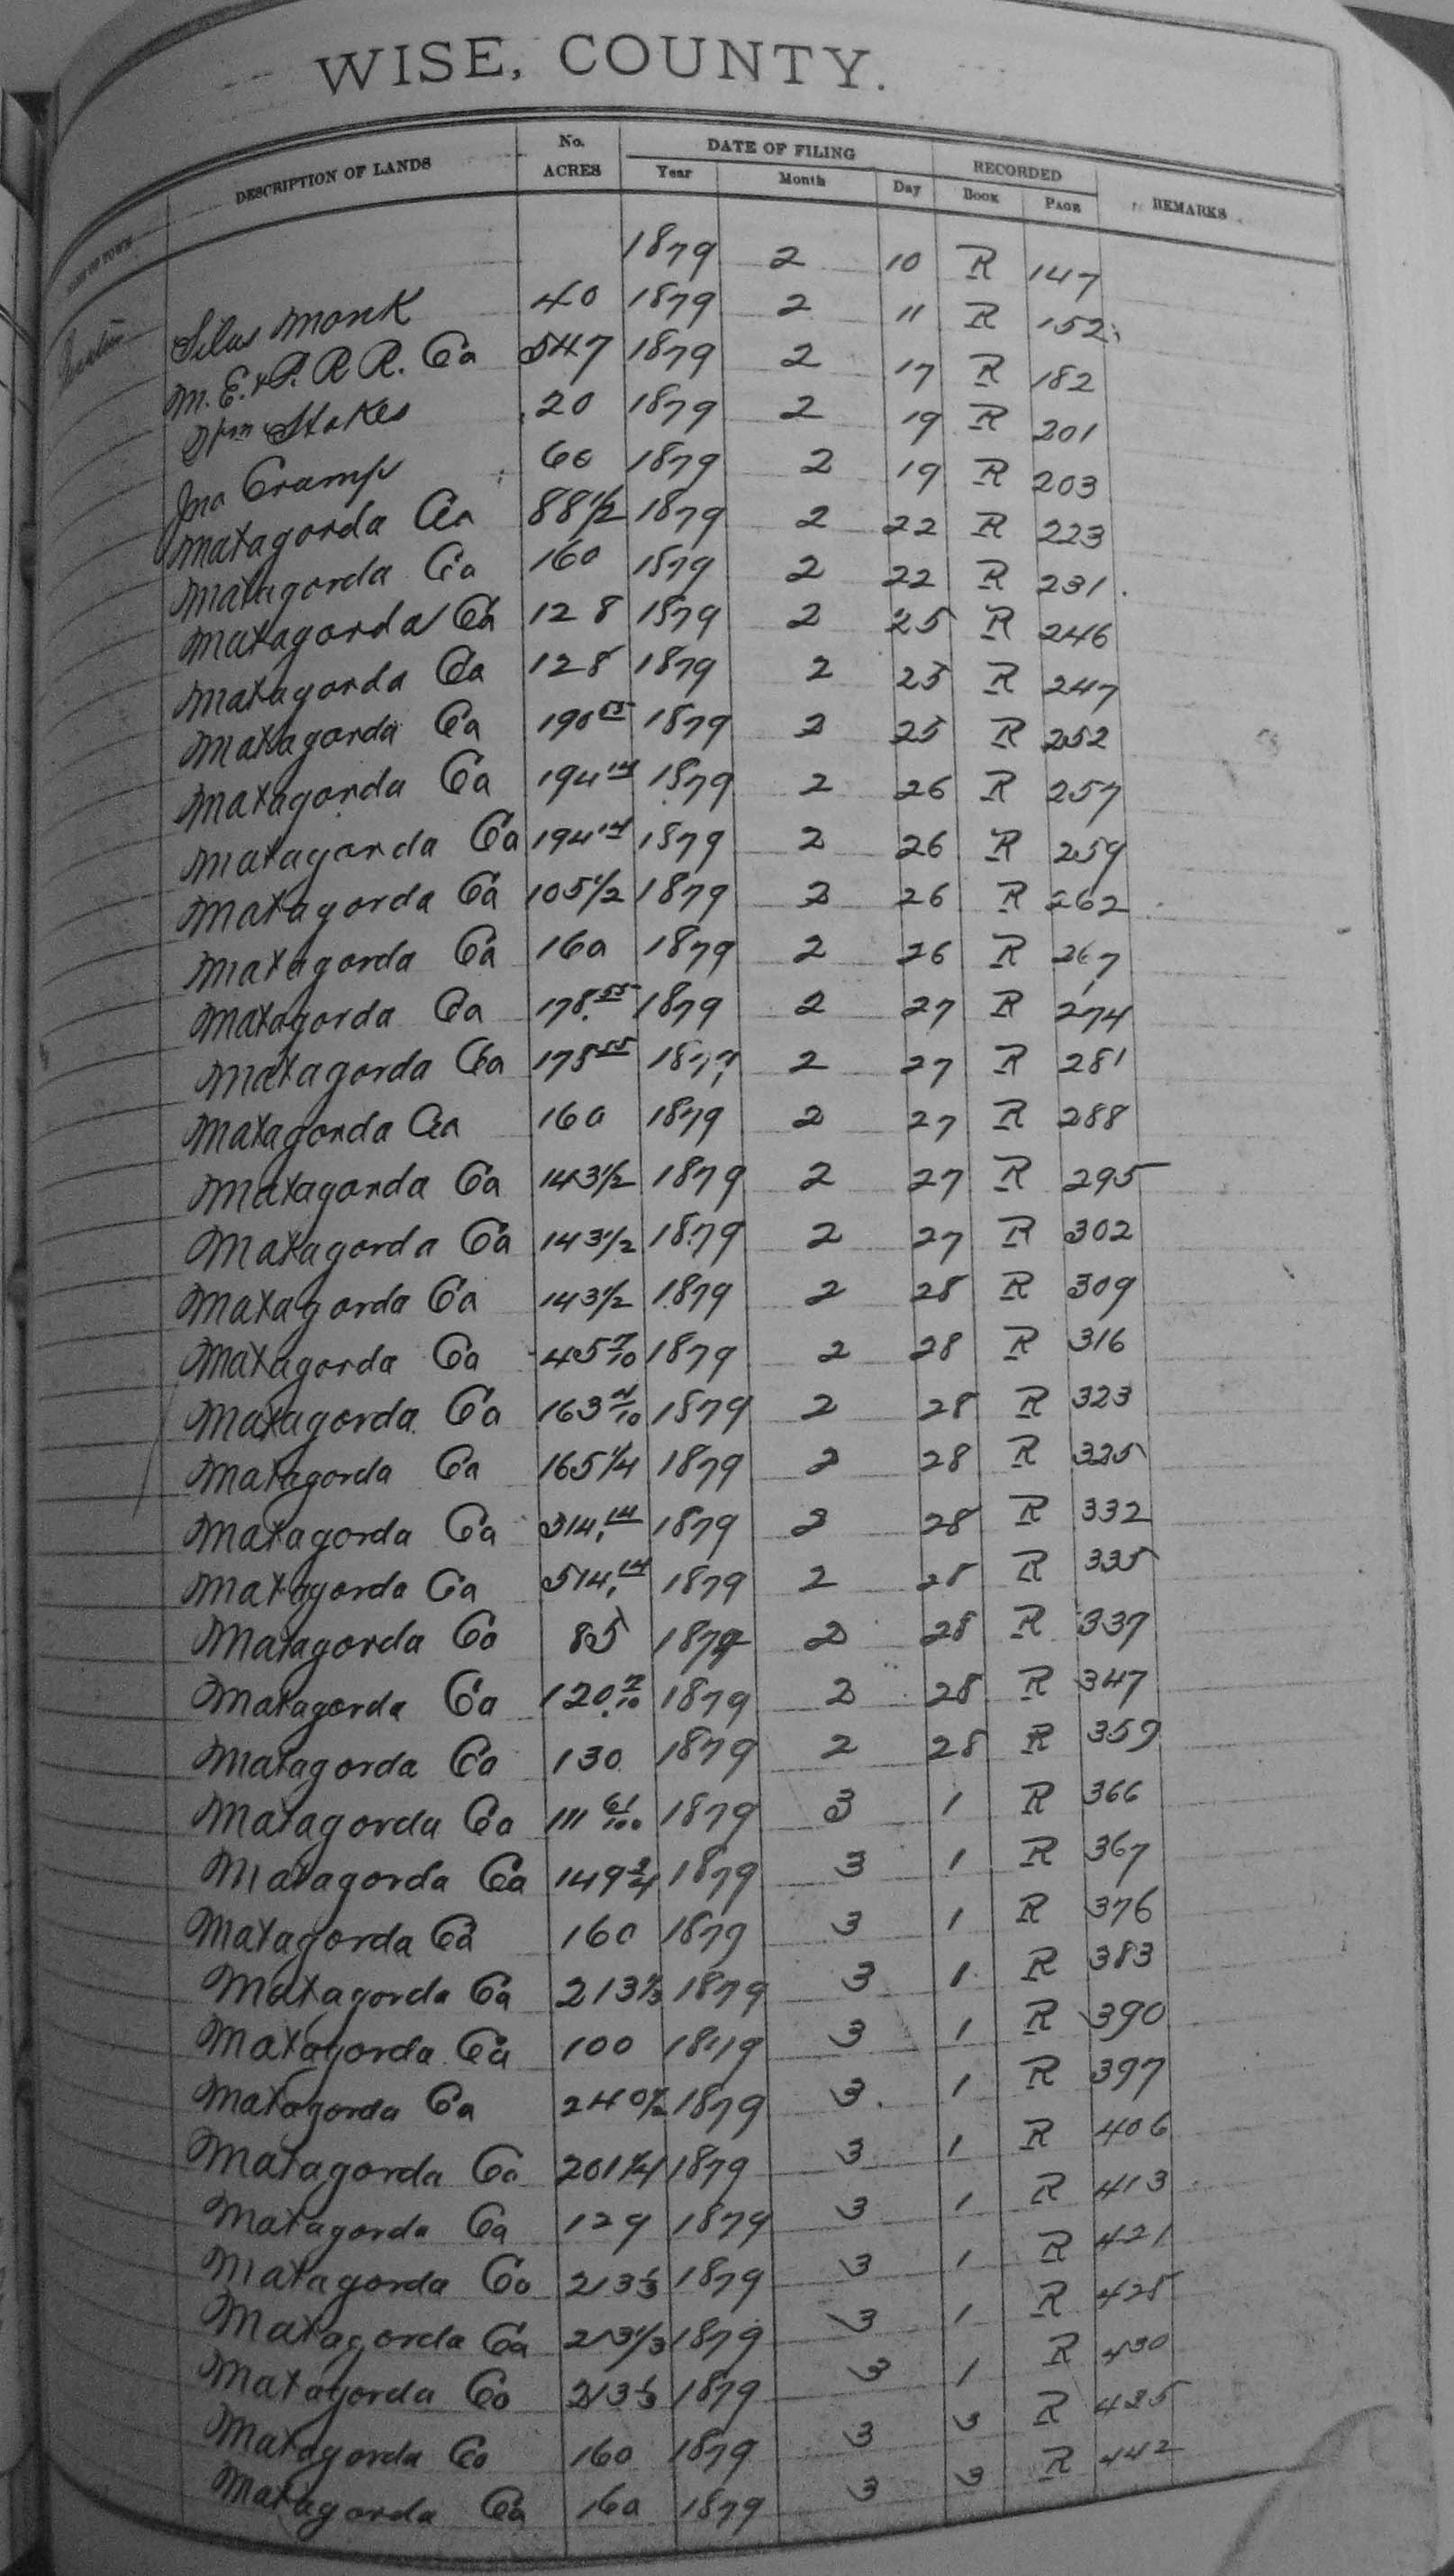 WISE, COUNTY.
DESCRIPTION OF LANDS No. ACRES DATE OF FILING Year Month Day RECORDED BOOK PAGE REMARKS
1879 2 10 R 147
Silas Monk 40 1879 2 11 R 152
M. E. & P. R R. Co 547 1879 2 17 R 182
Wm Stokes 20 1879 2 19 R 201
Jno Cramp 60 1879 2 19 R 203
Matagorda Co 88 1/2 1879 2 22 R 223
Matagorda Co 160 1879 2 22 R 231
Matagorda Co 128 1879 2 25 R 246
Matagorda Co 128 1879 2 25 R 247
Matagorda Co 190 1879 2 25 R 252
Matagorda Co 194 14 1879 2 26 R 257
Matagorda Co 194 14 1879 2 26 R 259
Matagorda Co 105 1/2 1879 2 26 R 262
Matagorda Co 160 1879 2 26 R 267
Matagorda Co 178.55 1879 2 27 R 274
Matagorda Co 178 55 1879 2 27 R 281
Matagorda Co 160 1879 2 27 R 288
Matagorda Co 143 1/2 1879 2 27 R 295
Matagorda Co 143 1/2 1879 2 27 R 302
Matagorda Co 143 1/2 1879 2 28 R 309
Matagorda Co 45 7/10 1879 2 28 R 316
Matagorda Co 163 4/10 1879 2 28 R 323
Matagorda Co 165 1/4 1879 2 28 R 325
Matagorda Co 314.14 1879 2 28 R 332
Matagorda Co 514.14 1879 2 28 R 335
Matagorda Co 85 1879 2 28 R 337
Matagorda Co 120 7/10 1879 2 28 R 347
Matagorda Co 130 1879 2 28 R 359
Matagorda Co 111 61/100 1879 3 1 R 366
Matagorda Co 149 3/4 1879 3 1 R 367
Matagorda Co 160 1879 3 1 R 376
Matagorda Co 213 1/3 1879 3 1 R 383
Matagorda Co 100 1879 3 1 R 390
Matagorda Co 240 1/2 1879 3 1 R 397
Matagorda Co 201 1/4 1879 3 1 R 406
Matagorda Co 129 1879 3 1 R 413
Matagorda Co 213 1/3 1879 3 1 R 421
Matagorda Co 213 1/3 1879 3 1 R 425
Matagorda Co 213 1/3 1879 3 1 R 430
Matagorda Co 160 1879 3 3 R 435
Matagorda Co 160 1879 3 3 R 442